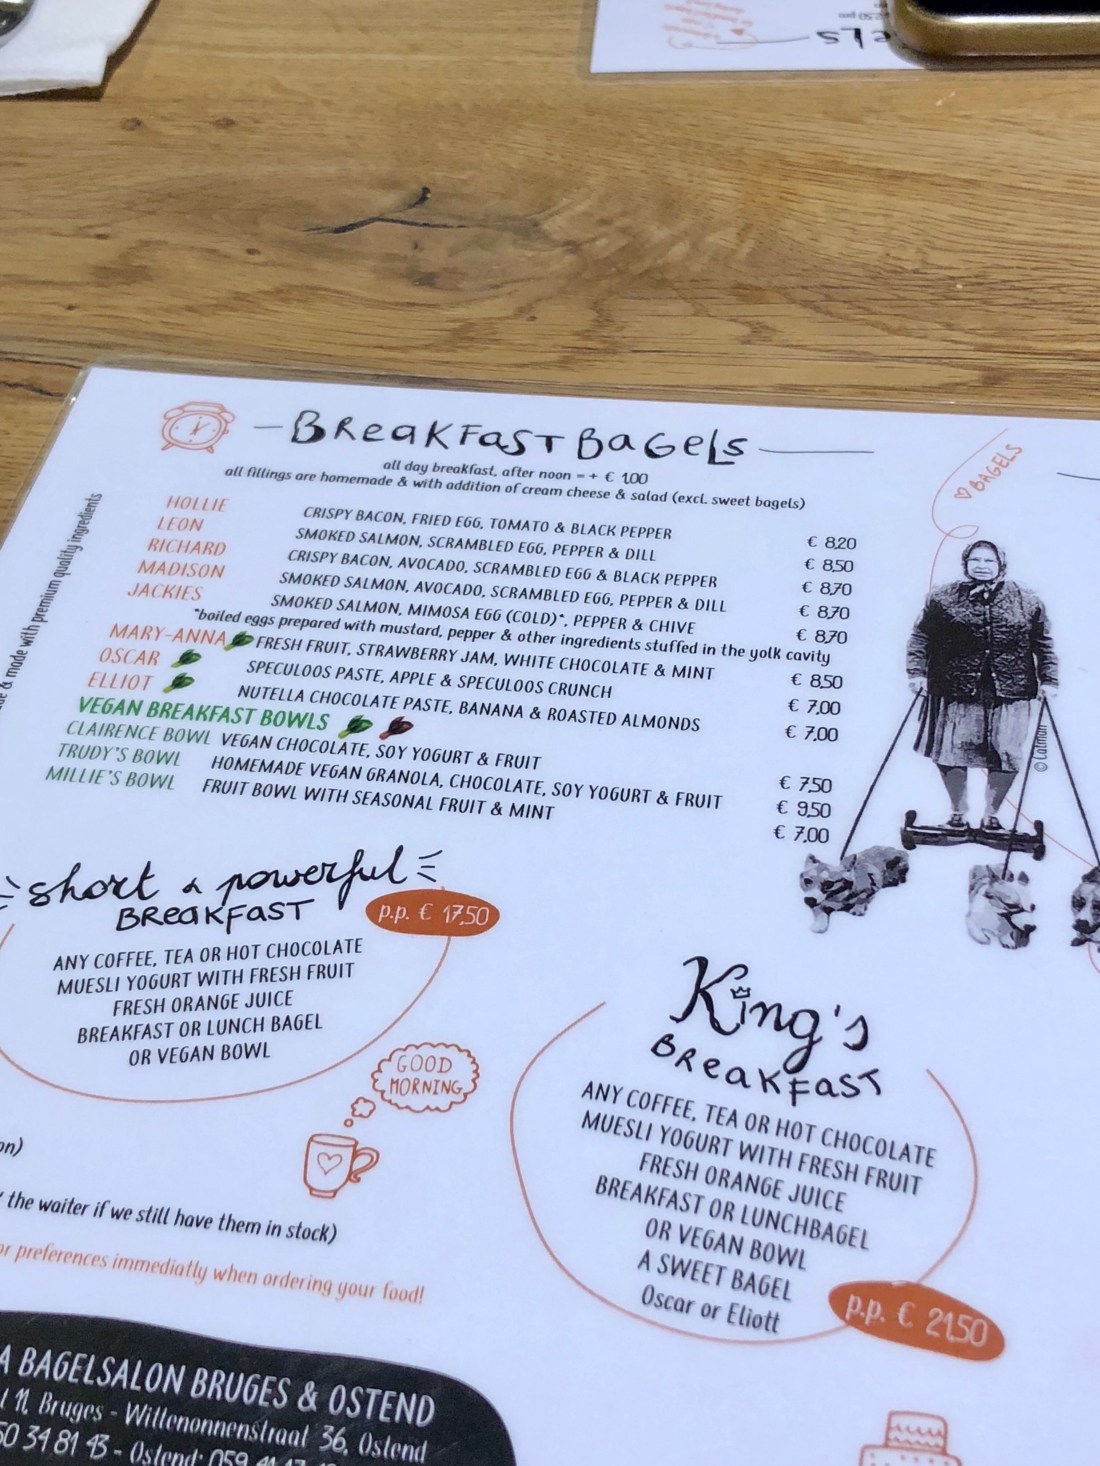 BREAKFAST BAGELS
all day breakfast, after noon = + € 1,00
all fillings are homemade & with addition of cream cheese & salad (excl. sweet bagels)
HOLLIE CRISPY BACON, FRIED EGG, TOMATO & BLACK PEPPER € 8,20
LEON SMOKED SALMON, SCRAMBLED EGG, PEPPER & DILL € 8,50
RICHARD CRISPY BACON, AVOCADO, SCRAMBLED EGG & BLACK PEPPER € 8,70
MADISON SMOKED SALMON, AVOCADO, SCRAMBLED EGG, PEPPER & DILL € 8,70
JACKIES SMOKED SALMON, MIMOSA EGG (COLD)*, PEPPER & CHIVE € 8,70
*boiled eggs prepared with mustard, pepper & other ingredients stuffed in the yolk cavity
MARY-ANNA FRESH FRUIT, STRAWBERRY JAM, WHITE CHOCOLATE & MINT € 8,50
OSCAR SPECULOOS PASTE, APPLE & SPECULOOS CRUNCH € 7,00
ELLIOT NUTELLA CHOCOLATE PASTE, BANANA & ROASTED ALMONDS € 7,00
VEGAN BREAKFAST BOWLS
CLAIRENCE BOWL VEGAN CHOCOLATE, SOY YOGURT & FRUIT € 7,50
TRUDY'S BOWL HOMEMADE VEGAN GRANOLA, CHOCOLATE, SOY YOGURT & FRUIT € 9,50
MILLIE'S BOWL FRUIT BOWL WITH SEASONAL FRUIT & MINT € 7,00
& made with premium quality ingredients
♡ BAGELS
© Catman
short & powerful
BREAKFAST
p.p. € 17,50
ANY COFFEE, TEA OR HOT CHOCOLATE
MUESLI YOGURT WITH FRESH FRUIT
FRESH ORANGE JUICE
BREAKFAST OR LUNCH BAGEL
OR VEGAN BOWL
GOOD
MORNING
King's
BREAKFAST
ANY COFFEE, TEA OR HOT CHOCOLATE
MUESLI YOGURT WITH FRESH FRUIT
FRESH ORANGE JUICE
BREAKFAST OR LUNCHBAGEL
OR VEGAN BOWL
A SWEET BAGEL
Oscar or Eliott
p.p. € 21,50
the waiter if we still have them in stock)
or preferences immediatly when ordering your food!
A BAGELSALON BRUGES & OSTEND
11, Bruges - Wittenonnenstraat 36, Ostend
50 34 81 43 - Ostend: 059